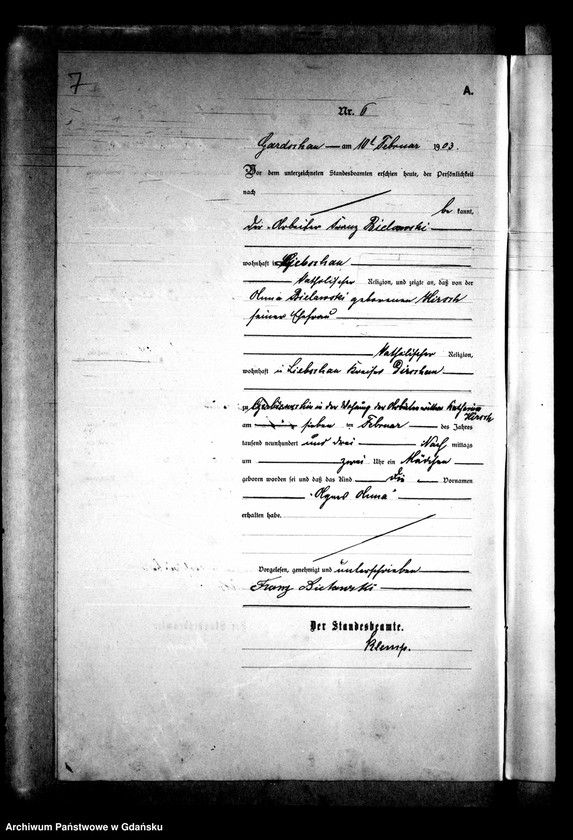 7
A.
Nr. 6
Gardschau am 10t Februar 1903.
Vor dem unterzeichneten Standesbeamten erschien heute, der Persönlichkeit
nach
be kannt,
der Arbeiter Franz Bielawski
wohnhaft in Liebschau
katholischer Religion, und zeigte an, daß von der
Anna Bielawski geborenen Hirsch
seiner Ehefrau
katholischer Religion,
wohnhaft in Liebschau Kreises Dirschau
zu in der Wohnung der Arbeiterwittwe Katharina
Hirsch
am sieben ten Februar des Jahres
tausend neunhundert und drei Nach mittags
um zwei Uhr ein Mädchen
geboren worden sei und daß das Kind die Vornamen
"Agnes Anna"
erhalten habe.
Vorgelesen, genehmigt und unterschrieben
Franz Bielawski
Der Standesbeamte.
Klemp.
Archiwum Państwowe w Gdańsku